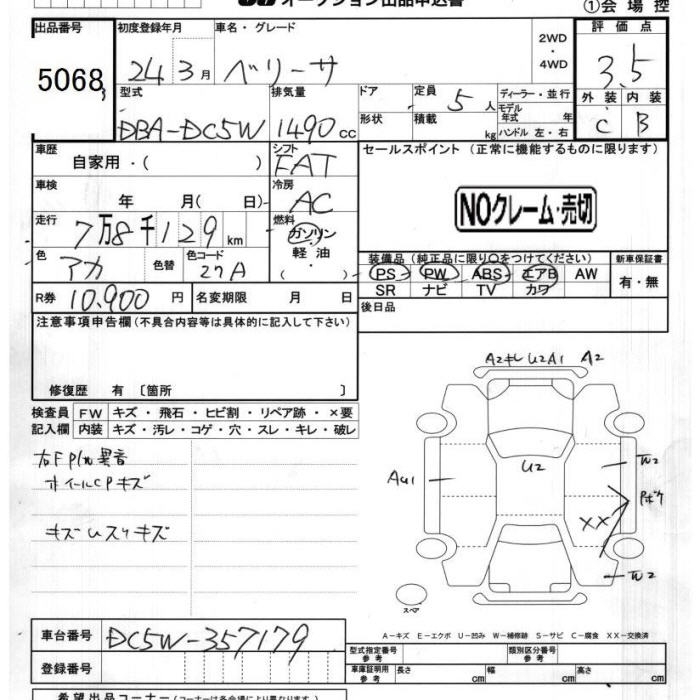 オークション出品申込書
①会場控
出品番号
5068
初度登録年月
24年3月
車名・グレード
ベリーサ
2WD・4WD
評価点
3.5
外装 内装
C B
型式
DBA-DC5W
排気量
1490cc
ドア
形状
定員
5人
積載
kg
ディーラー・並行
モデル年式 年
ハンドル 左・右
車歴
自家用・( )
シフト
FAT
セールスポイント (正常に機能するものに限ります)
NOクレーム・売切
車検
年 月( 日)
冷房
AC
走行
7万8千129km
燃料
ガソリン
軽油
・( )
色
アカ
色替
色コード
27A
装備品 (純正品に限り○をつけてください)
PS PW ABS エアB AW
SR ナビ TV カワ
新車保証書
有・無
R券
10.900円
名変期限 月 日
後日品
注意事項申告欄(不具合内容等は具体的に記入して下さい)
修復歴 有 〔箇所 〕
検査員記入欄
FW キズ・飛石・ヒビ割・リペア跡・×要
内装 キズ・汚レ・コゲ・穴・スレ・キレ・破レ
ホイールCPキズ
キズUスリキズ
A2キレ U2A1 A2
AU1
U2
W2
XX
Pボケ
W2
スペア
A-キズ E-エクボ U-凹み W-補修跡 S-サビ C-腐食 XX-交換済
車台番号
DC5W-357179
登録番号
型式指定番号 参考
類別区分番号 参考
車庫証明用 参考
長さ cm 幅 cm 高さ cm
希望出品コーナー(コーナーは各会場により異なります)